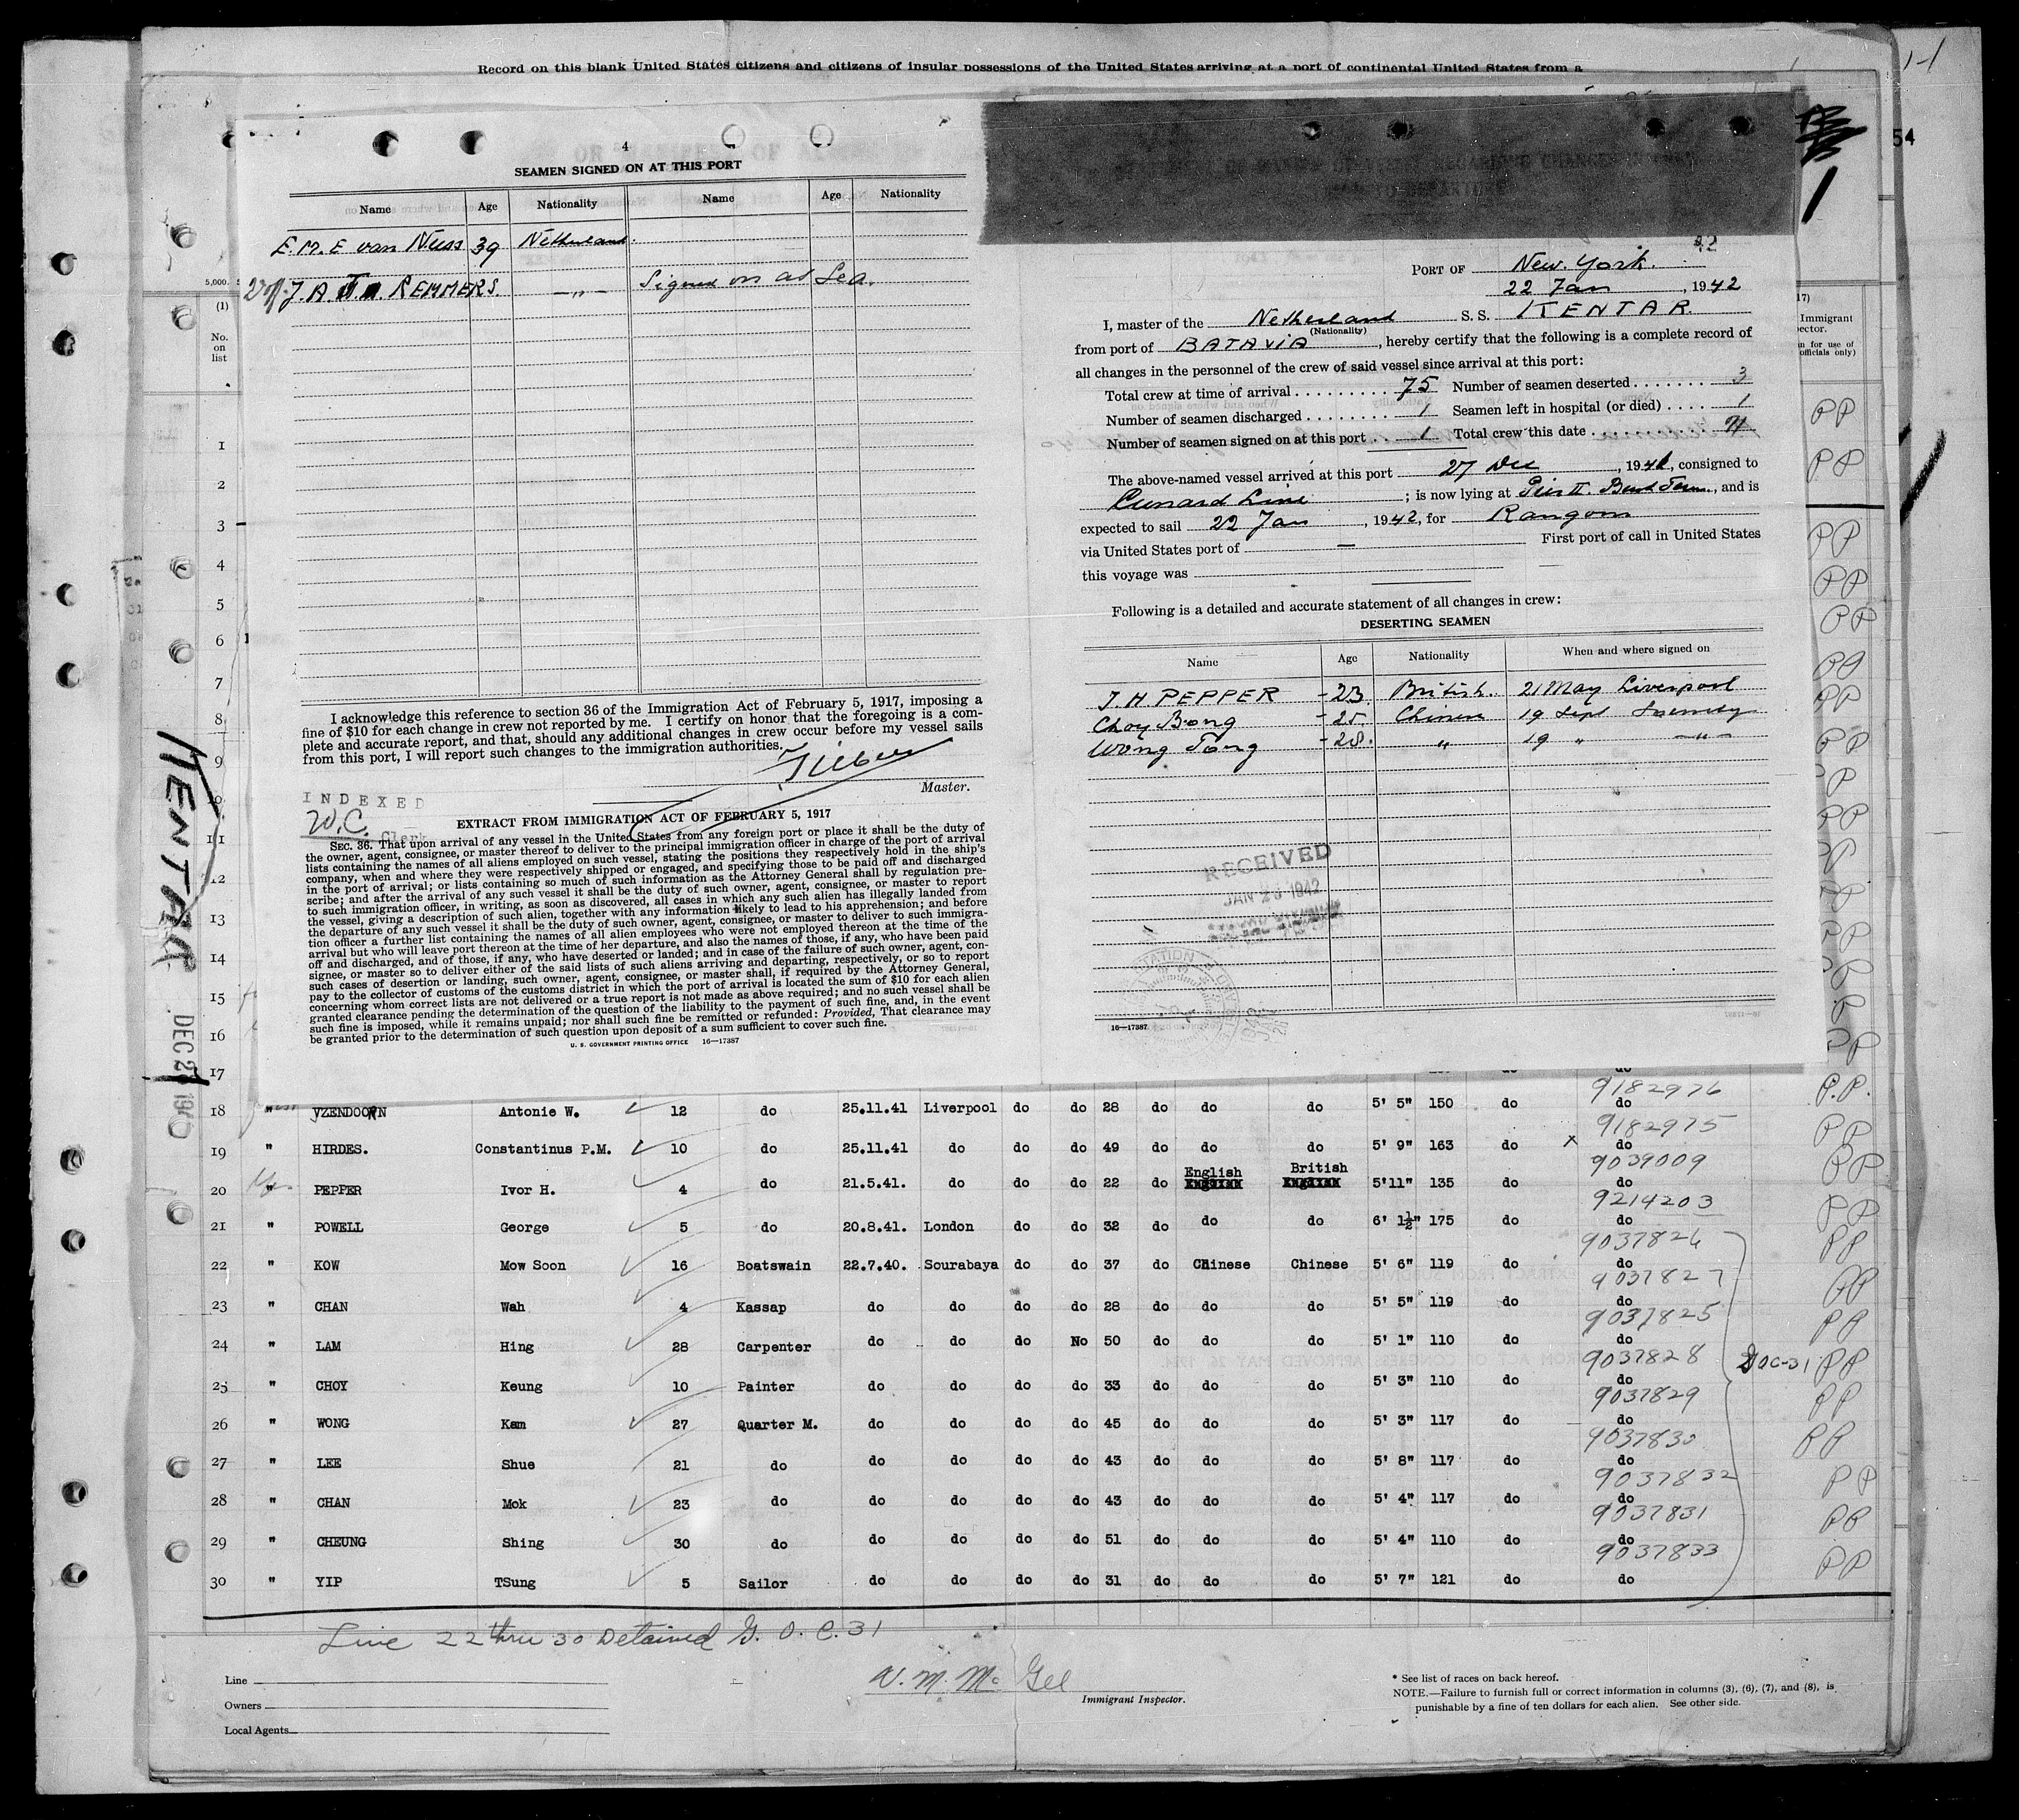 Record on this blank United States citizens and citizens of insular possessions of the United States arriving at a port of continental United States from a
4
SEAMEN SIGNED ON AT THIS PORT
Name Age Nationality Name Age Nationality
E.M.E van Nuss 39 Netherland.
J.A. REMMERS. —"— Signed on at Sea.
I acknowledge this reference to section 36 of the Immigration Act of February 5, 1917, imposing a
fine of $10 for each change in crew not reported by me. I certify on honor that the foregoing is a com-
plete and accurate report, and that, should any additional changes in crew occur before my vessel sails
from this port, I will report such changes to the immigration authorities.
Master.
INDEXED
W.C. Clerk
EXTRACT FROM IMMIGRATION ACT OF FEBRUARY 5, 1917
SEC. 36. That upon arrival of any vessel in the United States from any foreign port or place it shall be the duty of
the owner, agent, consignee, or master thereof to deliver to the principal immigration officer in charge of the port of arrival
lists containing the names of all aliens employed on such vessel, stating the positions they respectively hold in the ship's
company, when and where they were respectively shipped or engaged, and specifying those to be paid off and discharged
in the port of arrival; or lists containing so much of such information as the Attorney General shall by regulation pre-
scribe; and after the arrival of any such vessel it shall be the duty of such owner, agent, consignee, or master to report
to such immigration officer, in writing, as soon as discovered, all cases in which any such alien has illegally landed from
the vessel, giving a description of such alien, together with any information likely to lead to his apprehension; and before
the departure of any such vessel it shall be the duty of such owner, agent, consignee, or master to deliver to such immigra-
tion officer a further list containing the names of all alien employees who were not employed thereon at the time of the
arrival but who will leave port thereon at the time of her departure, and also the names of those, if any, who have been paid
off and discharged, and of those, if any, who have deserted or landed; and in case of the failure of such owner, agent, con-
signee, or master so to deliver either of the said lists of such aliens arriving and departing, respectively, or so to report
such cases of desertion or landing, such owner, agent, consignee, or master shall, if required by the Attorney General,
pay to the collector of customs of the customs district in which the port of arrival is located the sum of $10 for each alien
concerning whom correct lists are not delivered or a true report is not made as above required; and no such vessel shall be
granted clearance pending the determination of the question of the liability to the payment of such fine, and, in the event
such fine is imposed, while it remains unpaid; nor shall such fine be remitted or refunded: Provided, That clearance may
be granted prior to the determination of such question upon deposit of a sum sufficient to cover such fine.
U. S. GOVERNMENT PRINTING OFFICE 16—17387
PORT OF New York.
22 Jan, 1942
I, master of the Netherland S. S. KENTAR.
(Nationality)
from port of BATAVIA, hereby certify that the following is a complete record of
all changes in the personnel of the crew of said vessel since arrival at this port:
Total crew at time of arrival 75 Number of seamen deserted 3
Number of seamen discharged 1 Seamen left in hospital (or died) 1
Number of seamen signed on at this port 1 Total crew this date 71
The above-named vessel arrived at this port 27 Dec, 1941, consigned to
Cunard Line; is now lying at Pier II. Bush Term., and is
expected to sail 22 Jan, 1942, for Rangoon
via United States port of — First port of call in United States
this voyage was
Following is a detailed and accurate statement of all changes in crew:
DESERTING SEAMEN
Name Age Nationality When and where signed on
J.H PEPPER -23 British. 21 May Liverpool
Choy Bong -25 Chinese 19 Sept
Wong Tong -28. " 19 " —"—
RECEIVED
JAN 23 1942
16—17387
54
5,000.
(1)
No.
on
list
KENTAR
DEC 2
1
2
3
4
5
6
7
8
9
10
11
12
13
14
15
16
17
9182976
18 " YZENDOORN Antonie W. 12 do 25.11.41 Liverpool do do 28 do do do 5' 5" 150 do do P.P.
9182975
19 " HIRDES. Constantinus P.M. 10 do 25.11.41 do do do 49 do do do 5' 9" 163 do x do PP
9039009
20 " PEPPER Ivor H. 4 do 21.5.41. do do do 22 do English British 5'11" 135 do do PP
9214203
21 " POWELL George 5 do 20.8.41. London do do 32 do do do 6' 1½" 175 do do PP
9037826
22 " KOW Mow Soon 16 Boatswain 22.7.40. Sourabaya do do 37 do Chinese Chinese 5' 6" 119 do do PP
9037827
23 " CHAN Wah 4 Kassap do do do do 28 do do do 5' 5" 119 do do PP
9037825
24 " LAM Hing 28 Carpenter do do do No 50 do do do 5' 1" 110 do do PP
9037828
25 " CHOY Keung 10 Painter do do do do 33 do do do 5' 3" 110 do do PP
9037829
26 " WONG Kam 27 Quarter M. do do do do 45 do do do 5' 3" 117 do do PP
9037830
27 " LEE Shue 21 do do do do do 43 do do do 5' 8" 117 do do PP
9037832
28 " CHAN Mok 23 do do do do do 43 do do do 5' 4" 117 do do PP
9037831
29 " CHEUNG Shing 30 do do do do do 51 do do do 5' 4" 110 do do PP
9037833
30 " YIP TSung 5 Sailor do do do do 31 do do do 5' 7" 121 do do PP
Line 22 thru 30 Detained G. O. C. 31
Line
Owners
Local Agents
W. M. Mc Gee
Immigrant Inspector.
* See list of races on back hereof.
NOTE.—Failure to furnish full or correct information in columns (3), (6), (7), and (8), is
punishable by a fine of ten dollars for each alien. See other side.